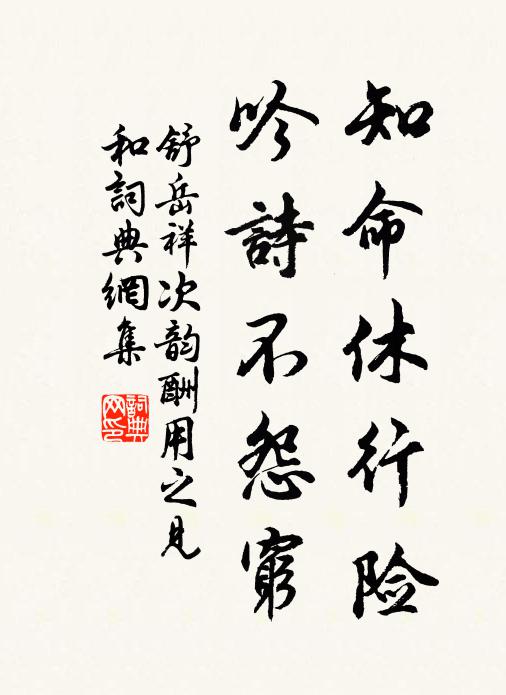 知命休行险
吟詩不怨窮
舒岳祥次韵酬用之见
和詞典網集
詞典
网印